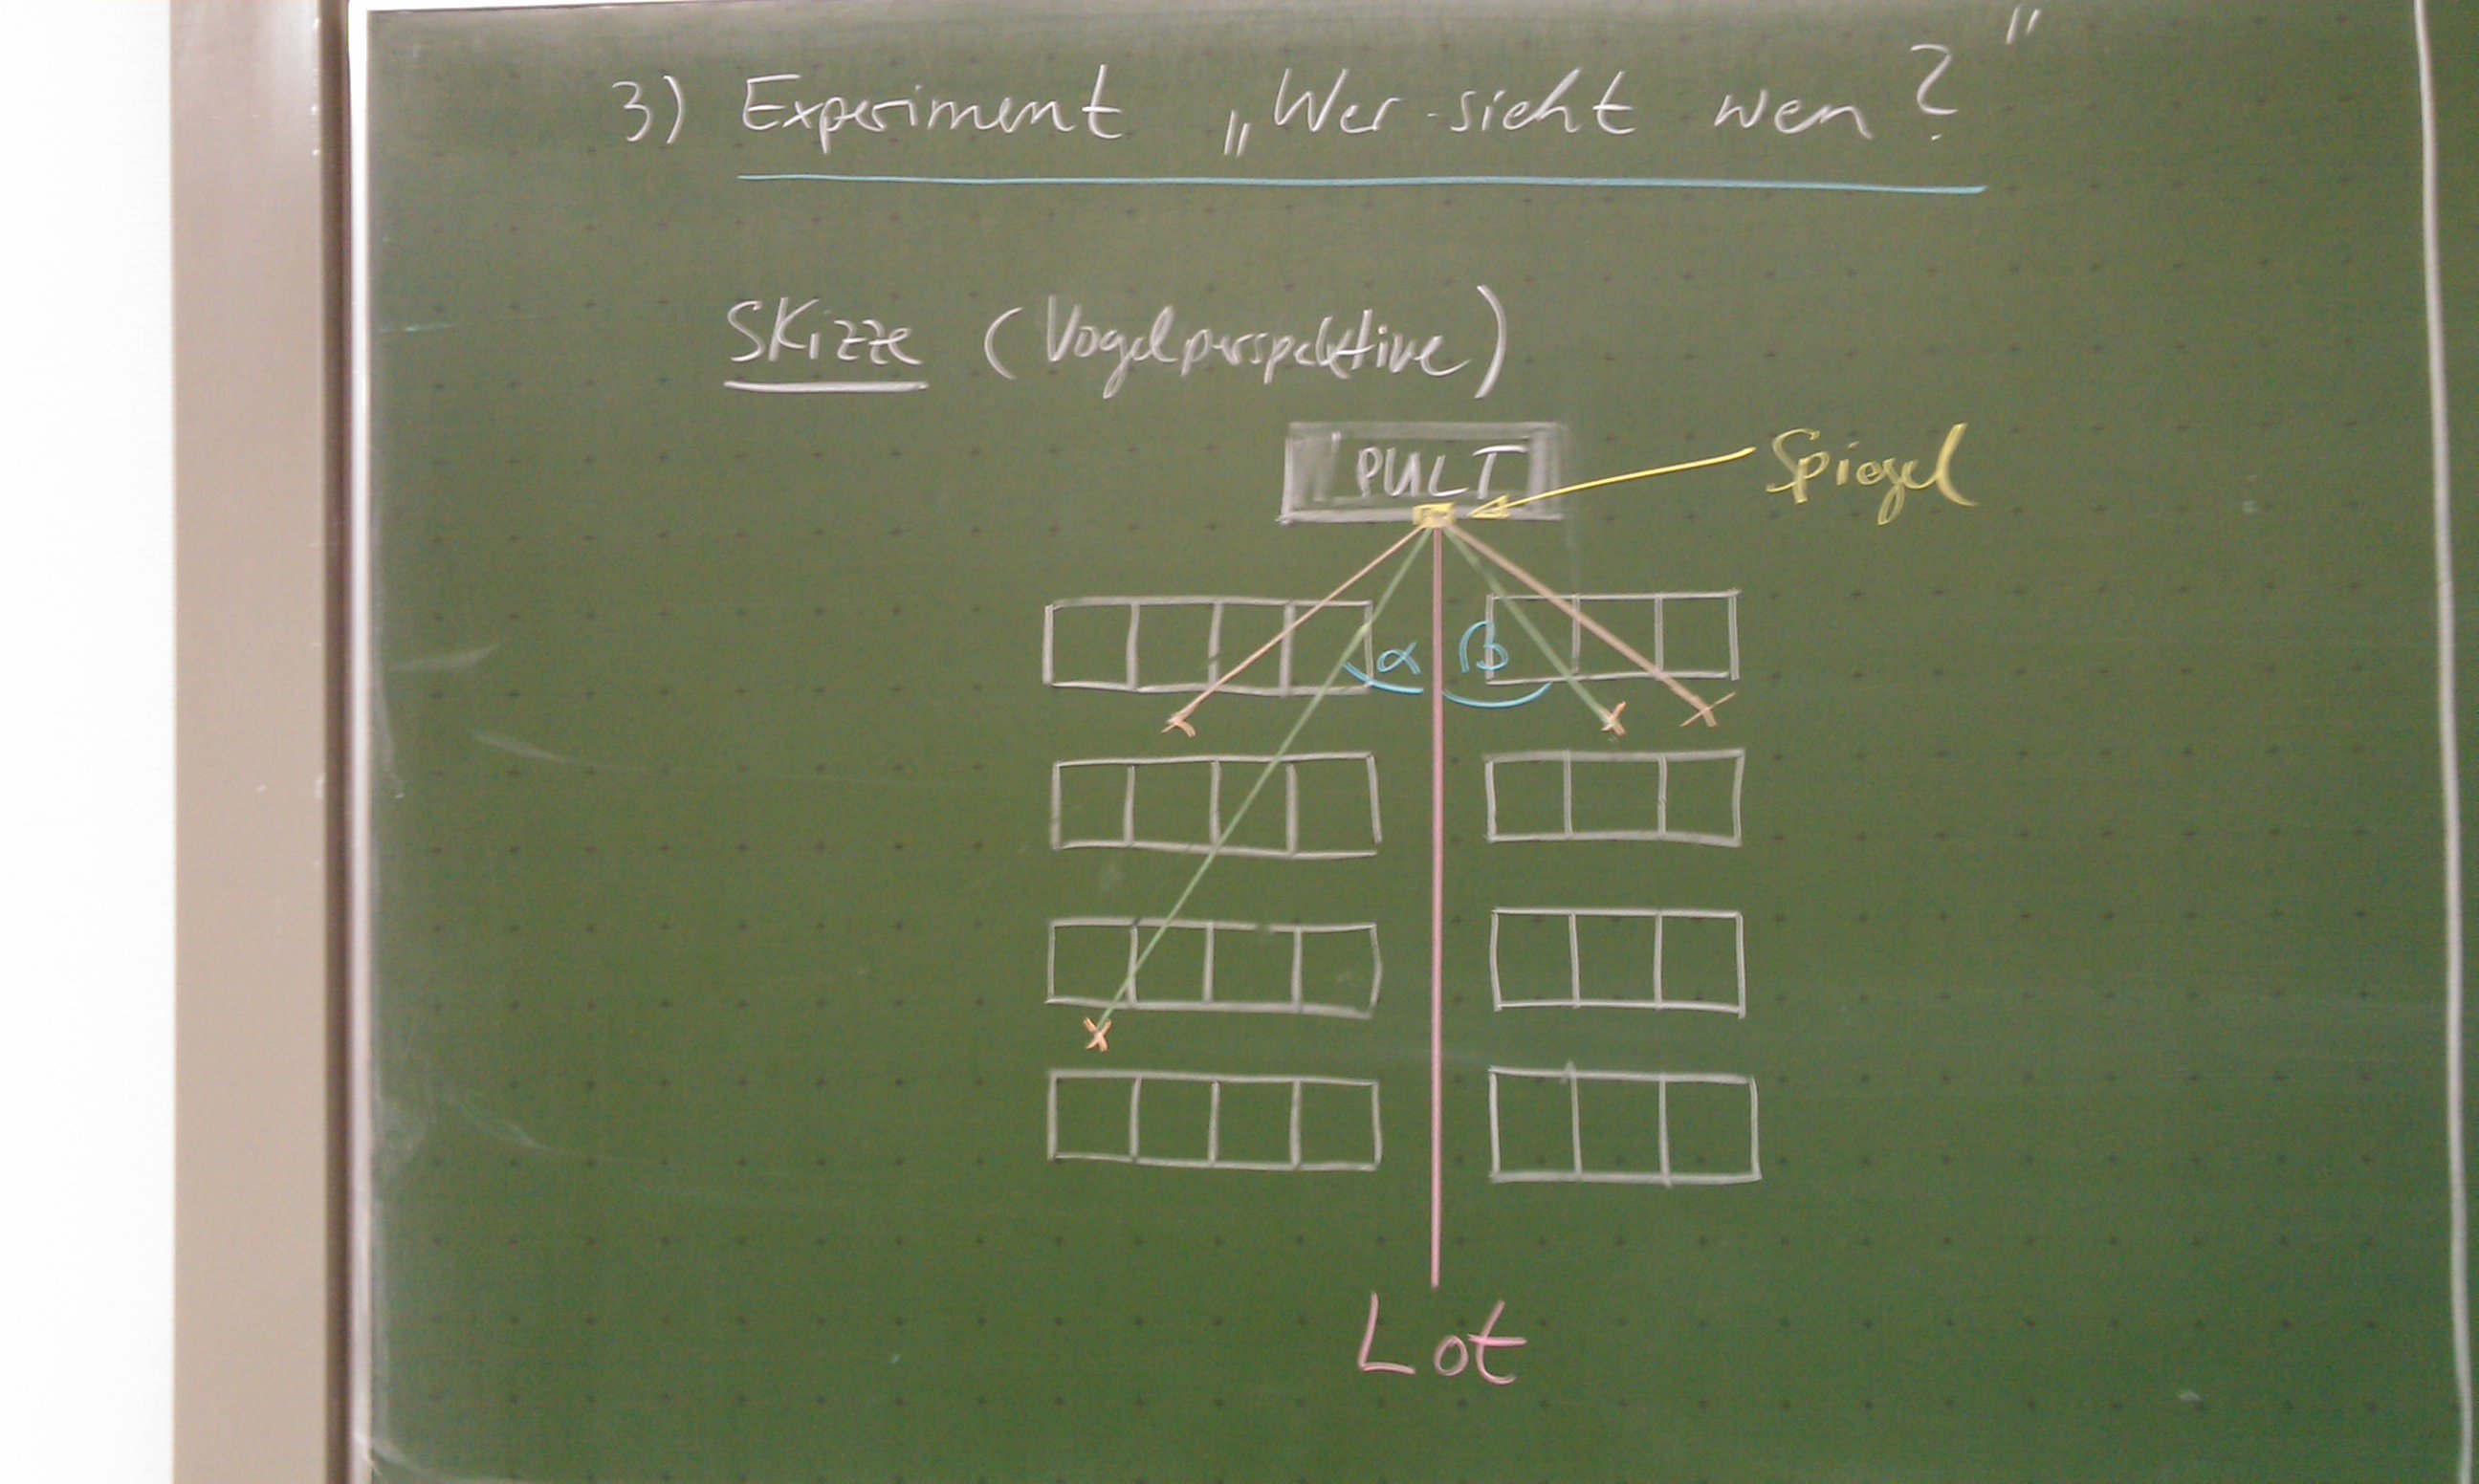 3) Experiment „Wer sieht wen?"
Skizze (Vogelperspektive)
PULT
Spiegel
α β
Lot